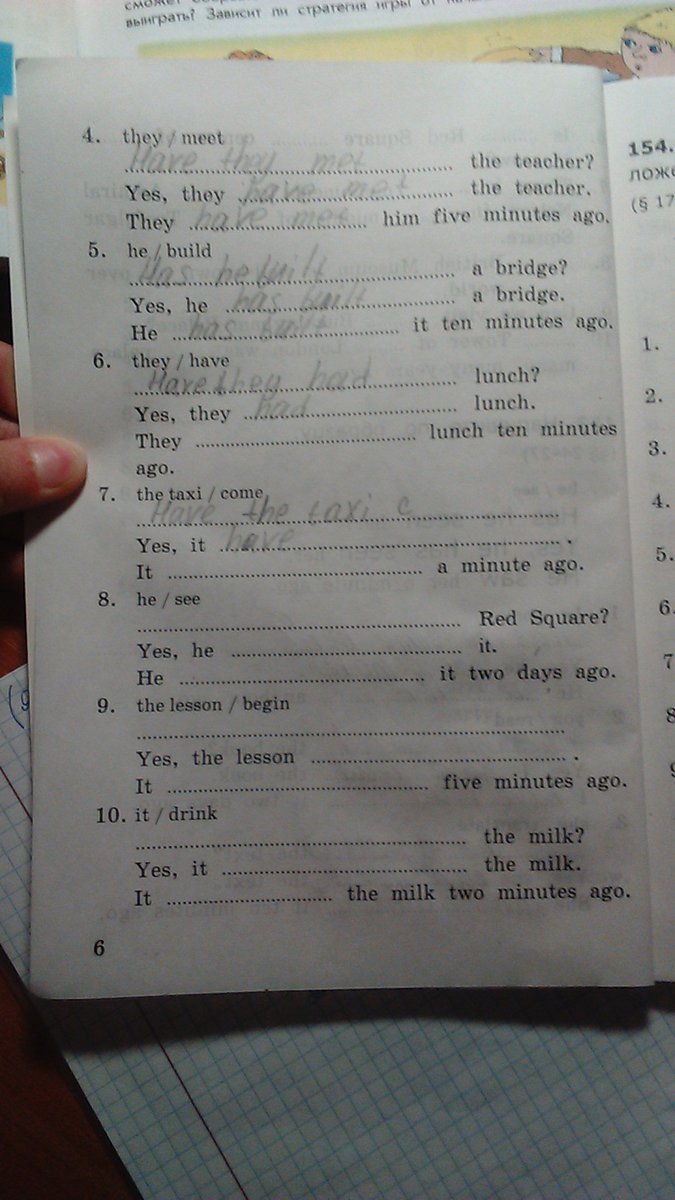 выиграть? Зависит ли стратегия игры от
4. they / meet
Have they met the teacher?
Yes, they have met the teacher.
They have met him five minutes ago.
5. he / build
Has he built a bridge?
Yes, he has built a bridge.
He has built it ten minutes ago.
6. they / have
Have they had lunch?
Yes, they had lunch.
They .......... lunch ten minutes
ago.
7. the taxi / come
Have the taxi c
Yes, it have .
It .......... a minute ago.
8. he / see
.......... Red Square?
Yes, he .......... it.
He .......... it two days ago.
9. the lesson / begin
..........
Yes, the lesson .......... .
It .......... five minutes ago.
10. it / drink
.......... the milk?
Yes, it .......... the milk.
It .......... the milk two minutes ago.
6
154.
(§ 17
1.
2.
3.
4.
5.
6.
7
8